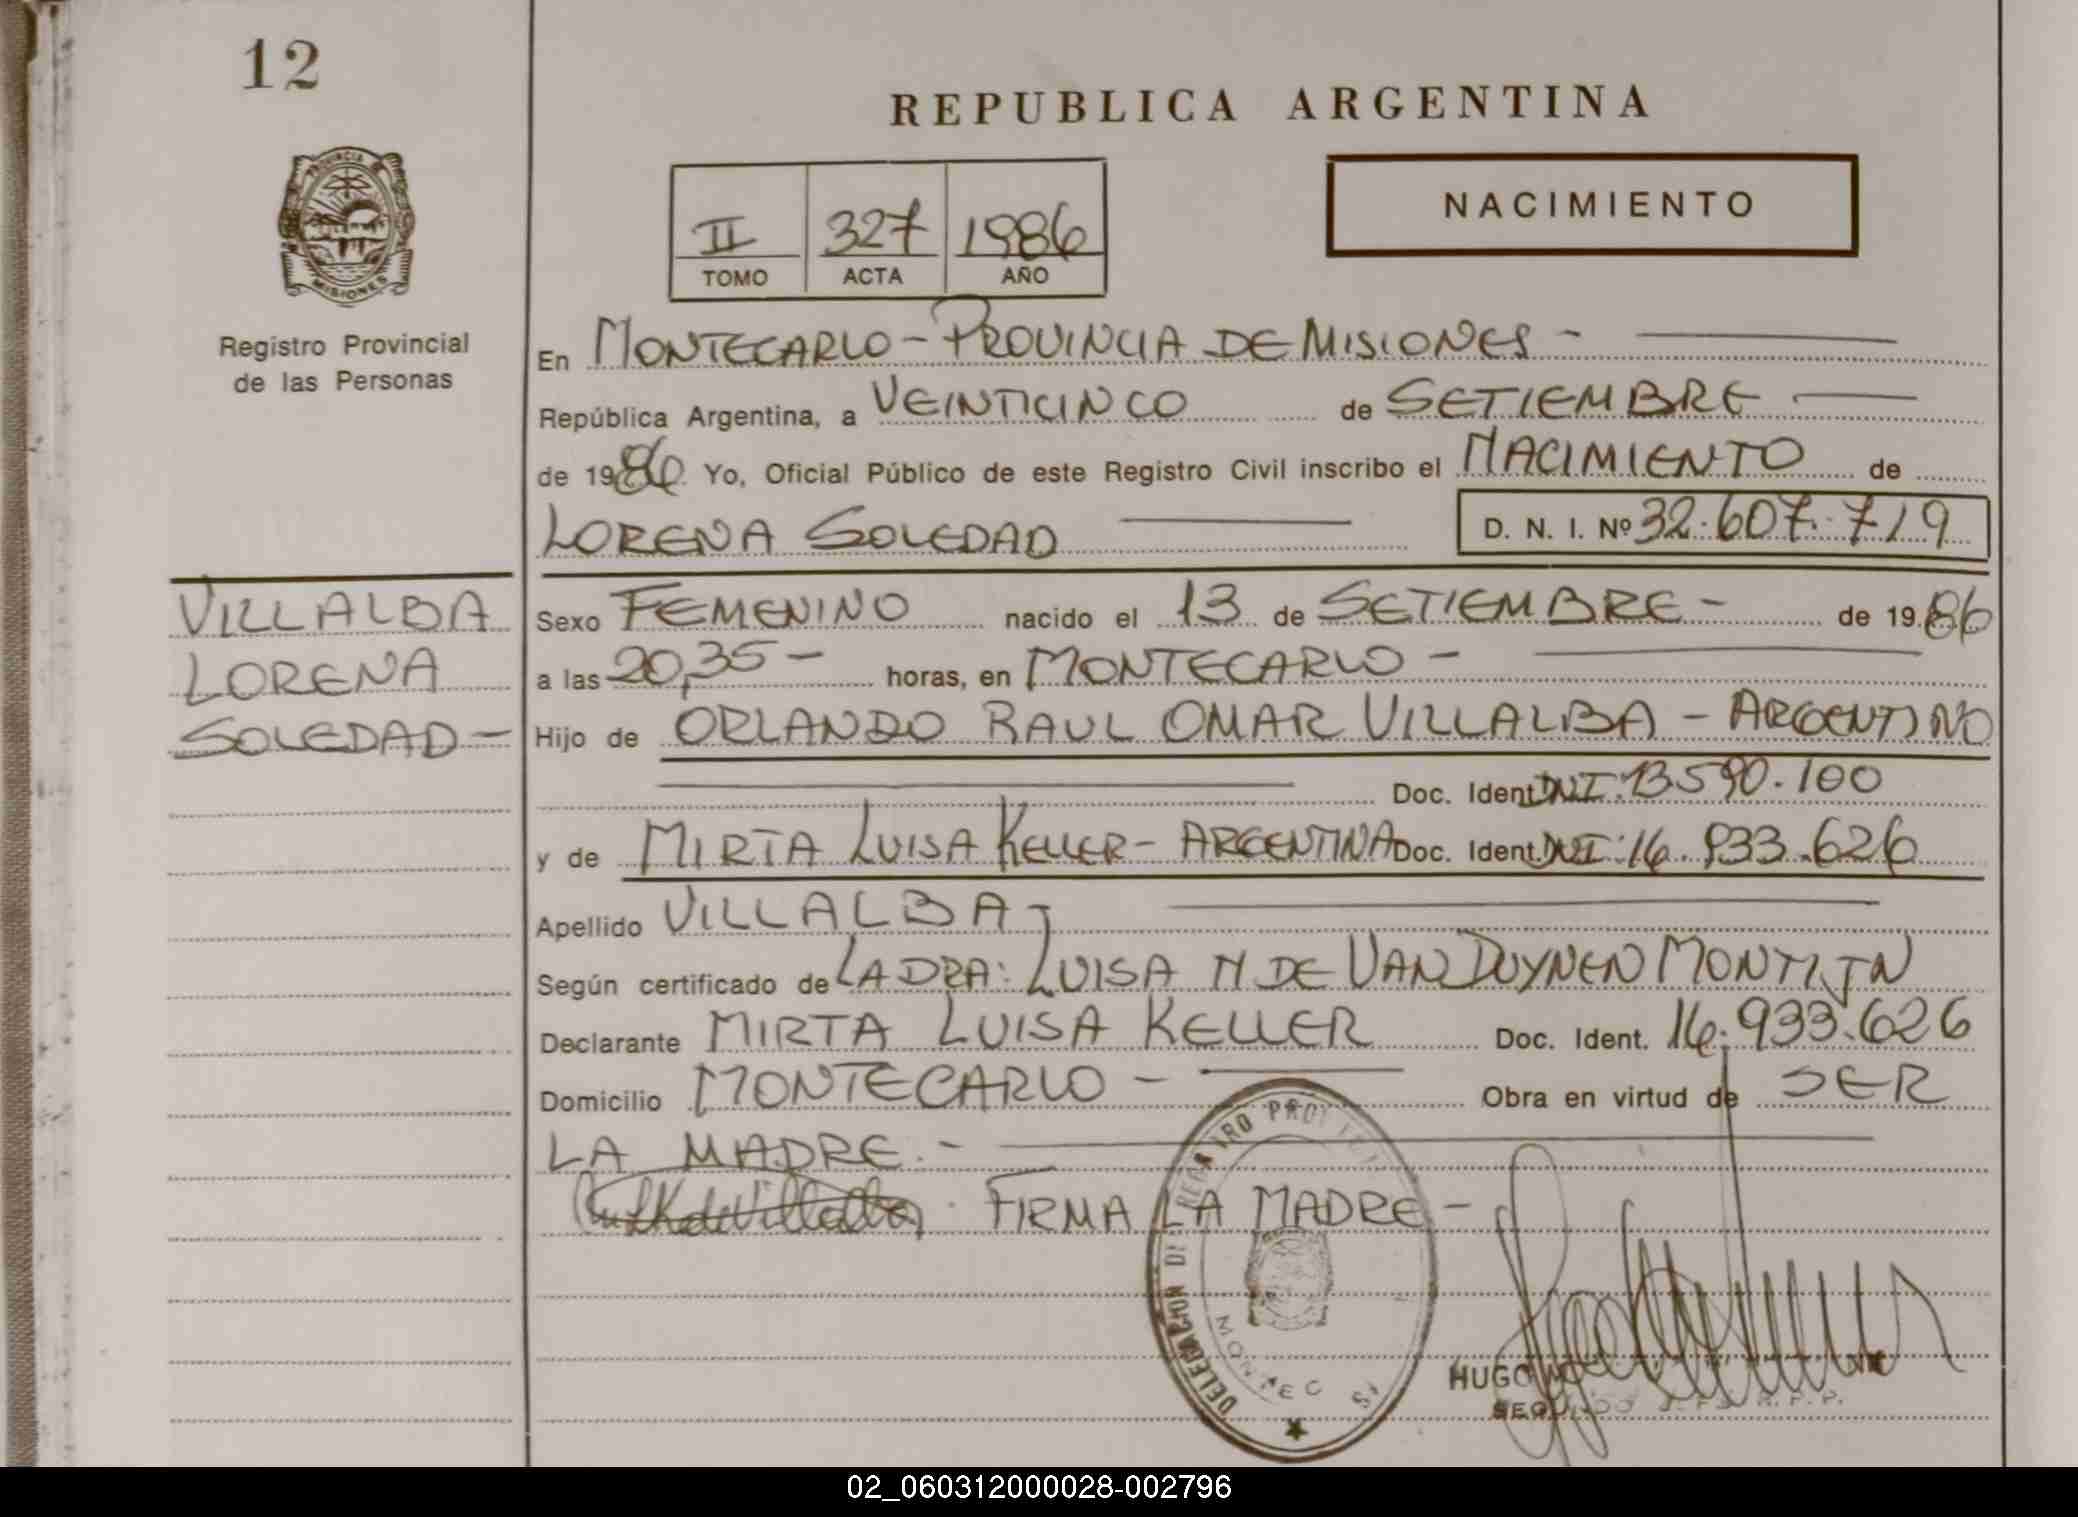 12
REPUBLICA ARGENTINA
NACIMIENTO
II 327 1986
TOMO ACTA AÑO
PROVINCIA
MISIONES
Registro Provincial
de las Personas
En MONTECARLO - PROVINCIA DE MISIONES -
República Argentina, a VEINTICINCO de SETIEMBRE
de 1986 Yo, Oficial Público de este Registro Civil inscribo el NACIMIENTO de
LORENA SOLEDAD D. N. I. Nº 32.607.719
VILLALBA
LORENA
SOLEDAD -
Sexo FEMENINO nacido el 13 de SETIEMBRE - de 1986
a las 20,35 - horas, en MONTECARLO -
Hijo de ORLANDO RAUL OMAR VILLALBA - ARGENTINO
Doc. Ident. DNI: 13.590.100
y de MIRTA LUISA KELLER - ARGENTINA Doc. Ident. DNI: 16.933.626
Apellido VILLALBA -
Según certificado de LA DRA: LUISA N DE VAN DUYNEN MONTIJN
Declarante MIRTA LUISA KELLER Doc. Ident. 16.933.626
Domicilio MONTECARLO - Obra en virtud de SER
LA MADRE. -
FIRMA LA MADRE -
DELEGACION DE REGISTRO
HUGO
SEGUNDO
02_060312000028-002796